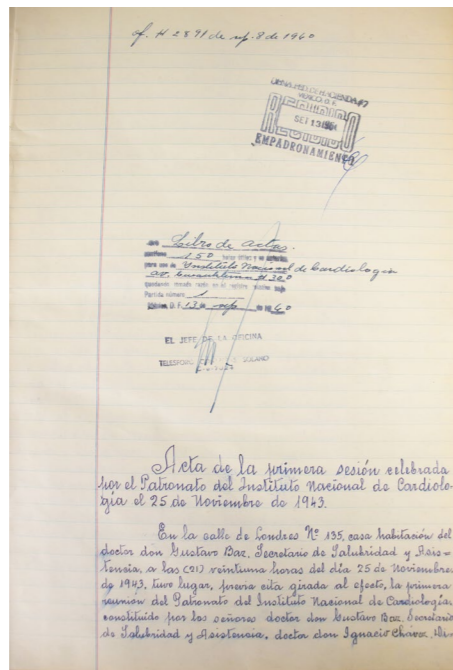 of. H 2891 de sep. 8 de 1960
HACIENDA #7
MEXICO, D.F.
SET 13 1960
EMPADRONAMIENTO
Libro de actas.
150
para uso de Instituto Nacional de Cardiología
av. Cuauhtémoc # 300
Partida número 1
México, D.F. 13 de sep de 1960
EL JEFE DE LA OFICINA
Acta de la primera sesión celebrada
por el Patronato del Instituto Nacional de Cardiolo-
gía el 25 de Noviembre de 1943.
En la calle de Londres Nº 135, casa habitación del
doctor don Gustavo Baz, Secretario de Salubridad y Asis-
tencia, a las (21) veintiuna horas del día 25 de Noviembre
de 1943, tuvo lugar, previa cita girada al efecto, la primera
reunión del Patronato del Instituto Nacional de Cardiología,
constituido por los señores doctor don Gustavo Baz, Secretario
de Salubridad y Asistencia, doctor don Ignacio Chávez, Di-